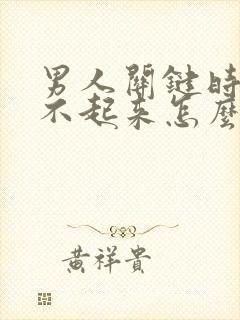 男人關鍵時
不起來怎麼
黃祥貴